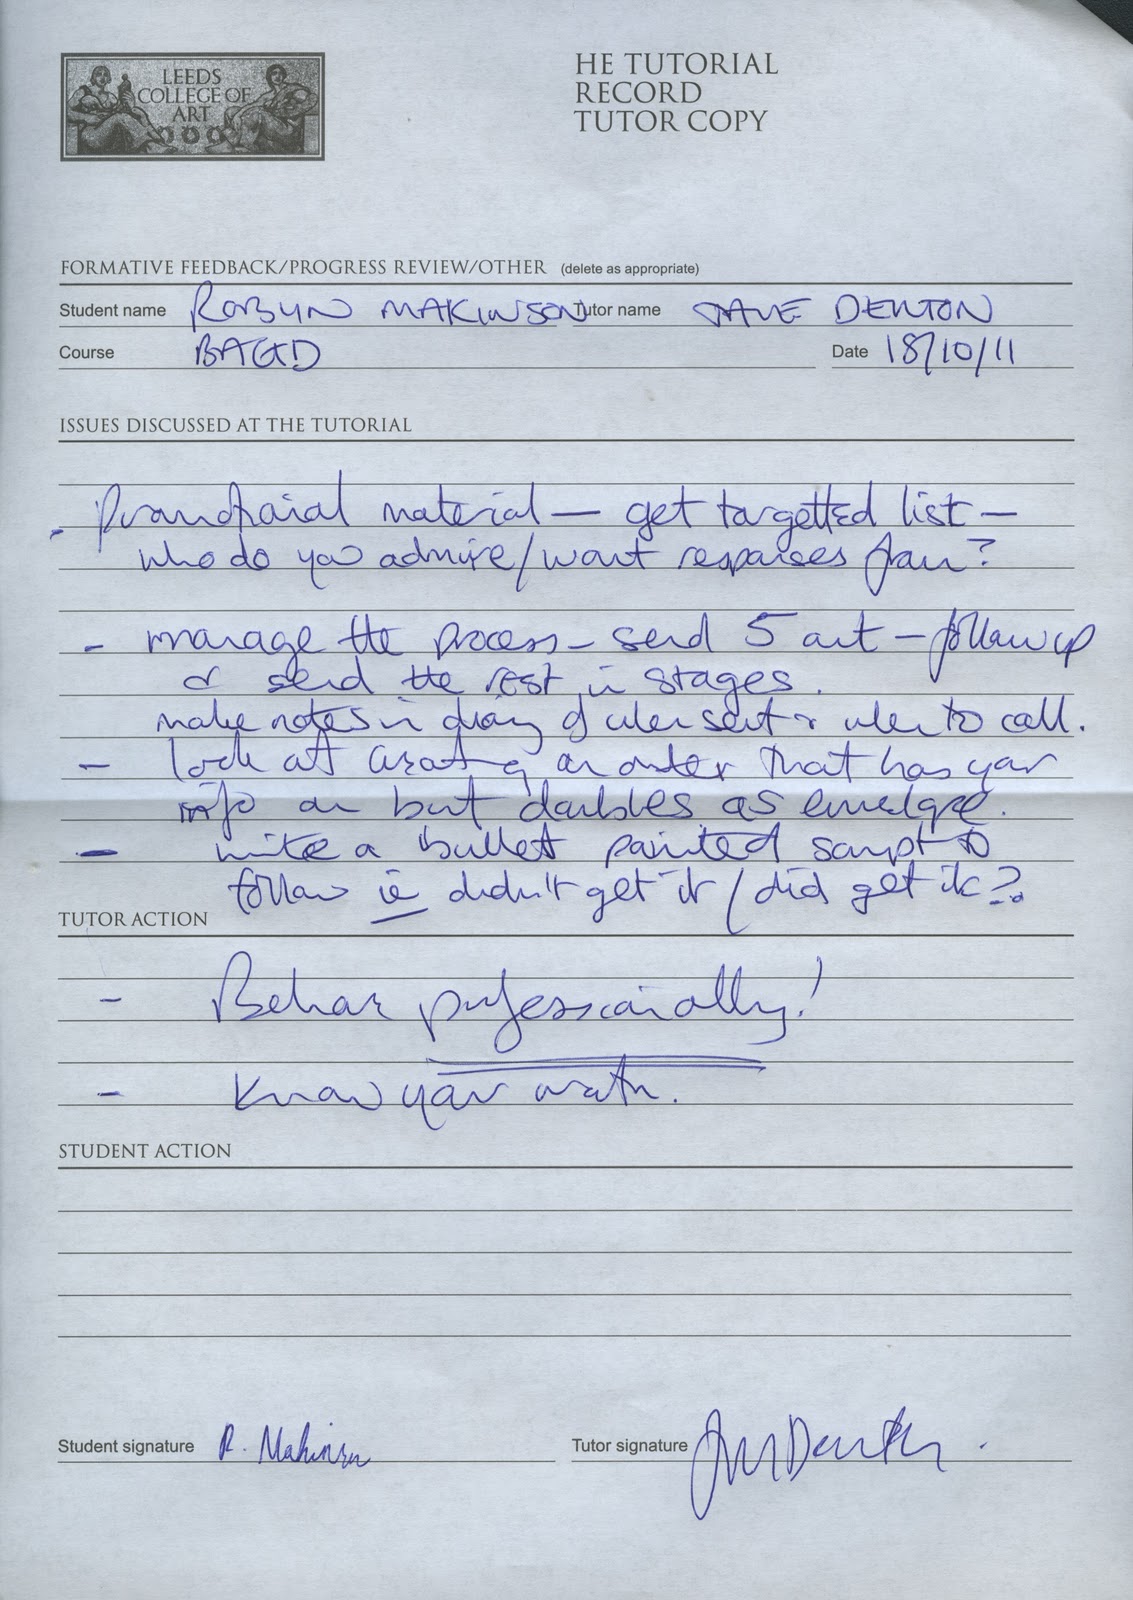 LEEDS
COLLEGE OF
ART
HE TUTORIAL
RECORD
TUTOR COPY
FORMATIVE FEEDBACK/PROGRESS REVIEW/OTHER (delete as appropriate)
Student name ROBYN MAKINSON Tutor name DAVE DENTON
Course BAGD Date 18/10/11
ISSUES DISCUSSED AT THE TUTORIAL
- Promotional material — get targetted list —
who do you admire/want responses from?
- manage the process - send 5 out - follow up
& send the rest in stages.
make notes in diary of when sent & when to call.
- look at creating an outer that has your
info on but doubles as envelope.
- write a bullet pointed script to
follow ie didn't get it / did get it?
TUTOR ACTION
- Behave professionally!
- Know your worth.
STUDENT ACTION
Student signature R. Makinson Tutor signature